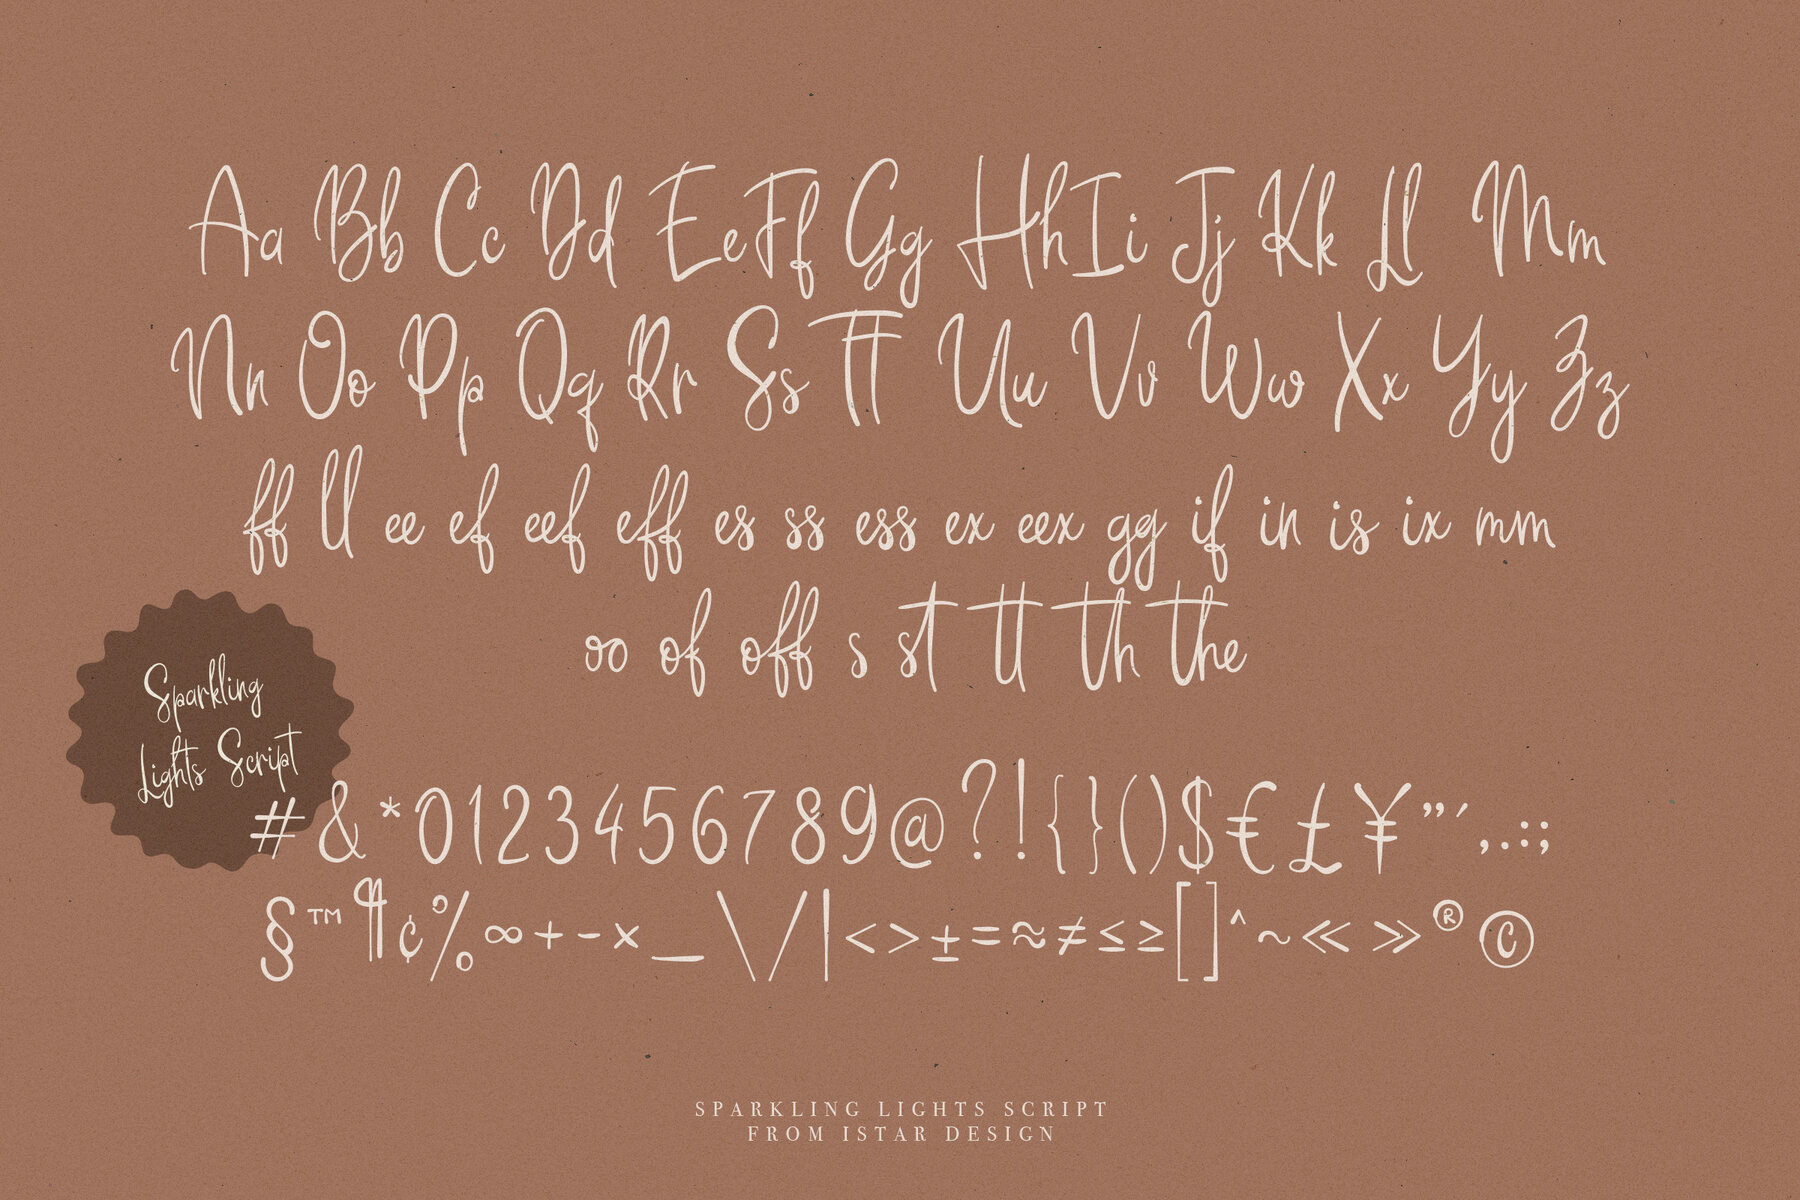 Aa Bb Cc Dd Ee Ff Gg Hh Ii Jj Kk Ll Mm
Nn Oo Pp Qq Rr Ss Tt Uu Vv Ww Xx Yy Zz
ff ll ee ef eef eff es ss ess ex eex gg if in is ix mm
oo of off s st tt th the
Sparkling
Lights Script
# & * 0 1 2 3 4 5 6 7 8 9 @ ? ! { } ( ) $ € £ ¥ ” ′ , . : ;
§ ™ ¶ ¢ % ∞ + - × _ \ / | < > ± = ≈ ≠ ≤ ≥ [ ] ^ ~ « » ® ©
SPARKLING LIGHTS SCRIPT
FROM ISTAR DESIGN